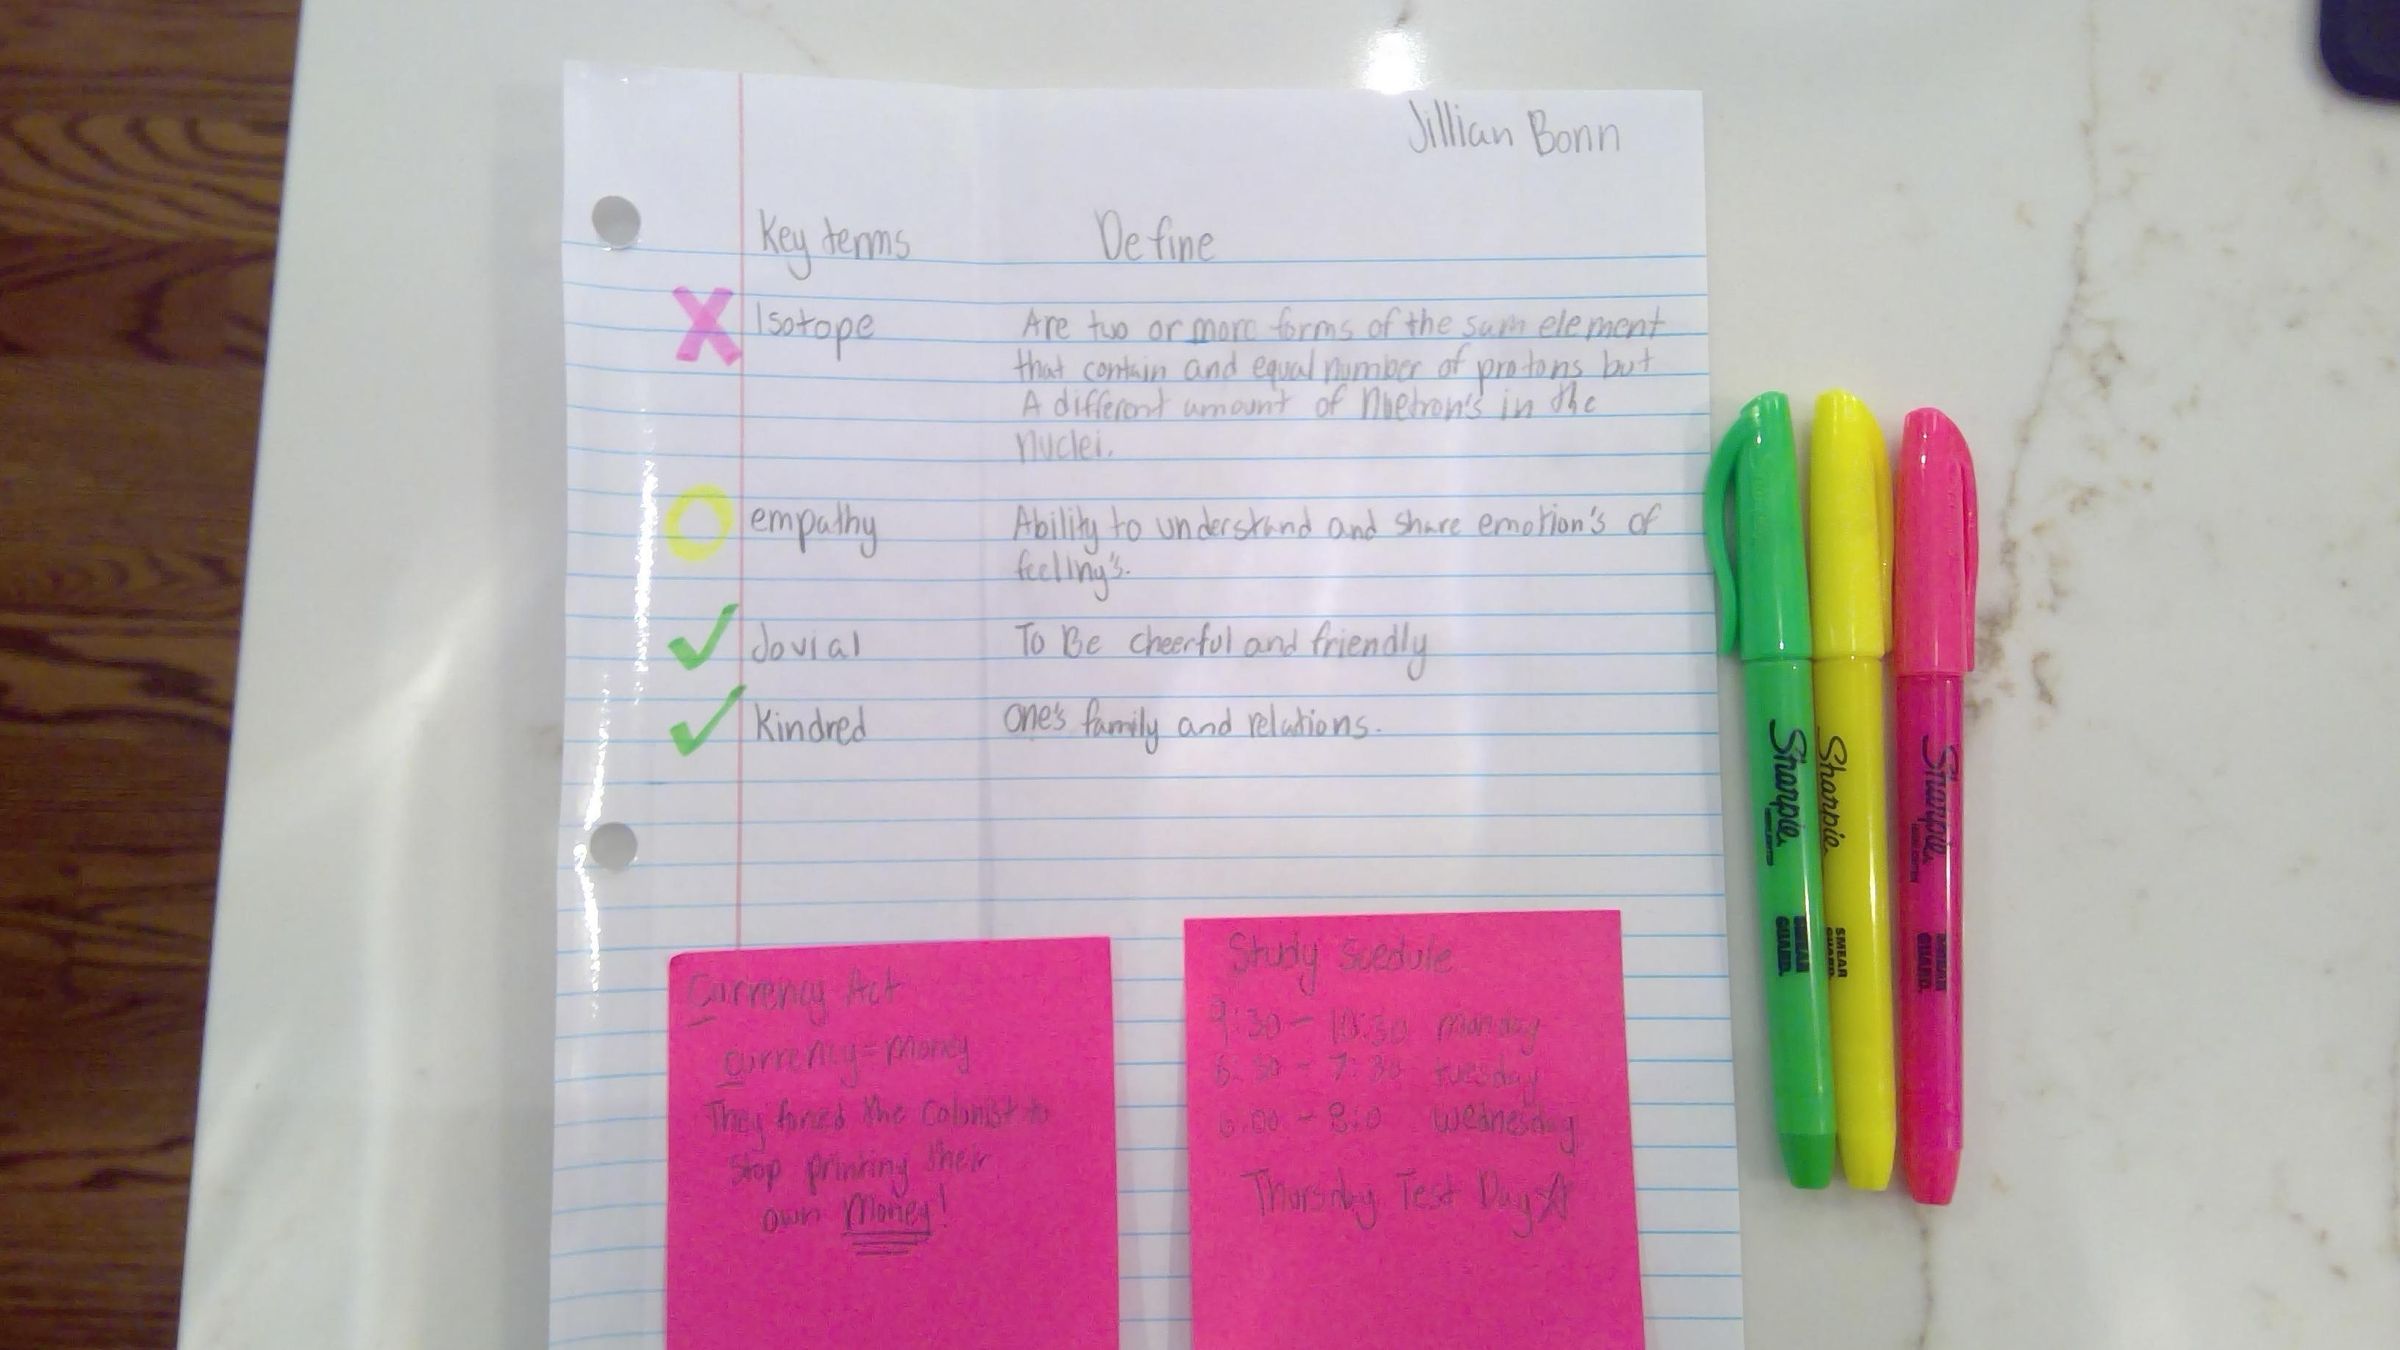 Jillian Bonn
Key terms Define
X Isotope Are two or more forms of the sum element
that contain and equal number of protons but
A different amount of Nuetron's in the
nuclei.
empathy Ability to understand and share emotion's of
feeling's.
✓ Jovial To Be cheerful and friendly
✓ Kindred one's family and relations.
Currency Act
currency = money
They forced the Colonist to
stop printing their
own Money!
Study Scedule
9:30 - 10:30 monday
6:30 - 7:30 tuesday
6:00 - 8:0 wednesday
Test Day
Sharpie
SMEAR
GUARD
Sharpie
SMEAR
GUARD
Sharpie
SMEAR
GUARD